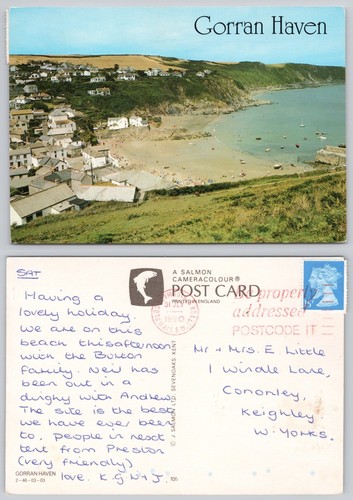 Gorran Haven
SAT
Having a
lovely holiday.
We are on this
beach this afternoon
with the Burton
family. Neil has
been out in a
dinghy with Andrew.
The site is the best
we have ever been
to, people in next
tent from Preston
(very friendly)
love. K, G, N + J.
GORRAN HAVEN
2-46-03-03
A SALMON
CAMERACOLOUR®
POST CARD
PRINTED IN ENGLAND
© J. SALMON LTD., SEVENOAKS, KENT
Be properly
addressed
POSTCODE IT
Mr + Mrs. E. Little
1 Windle Lane,
Cononley,
Keighley
W. Yorks.